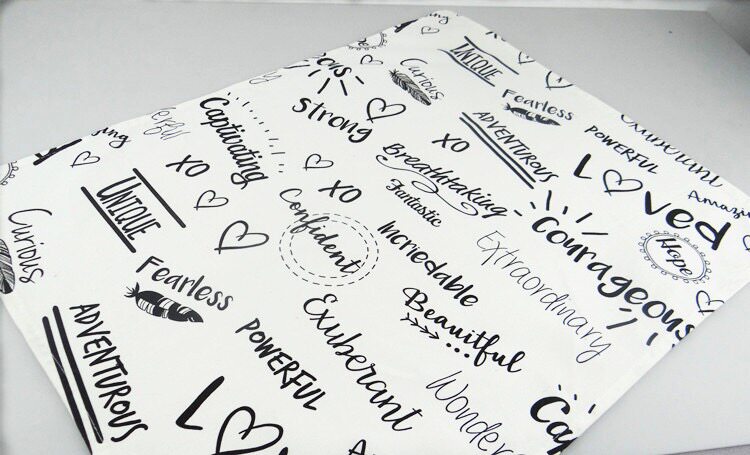 UNIQUE
Curious
Fearless
Exuberant
strong
XO
ADVENTUROUS
POWERFUL
Captivating
Breathtaking
Loved
Amazin
XO
XO
Fantastic
Courageous
Hope
UNIQUE
Confident
Incriedable
Extraordinary
Curious
Fearless
Beauitful
ADVENTUROUS
POWERFUL
Exuberant
Wonder
Cap
Lo